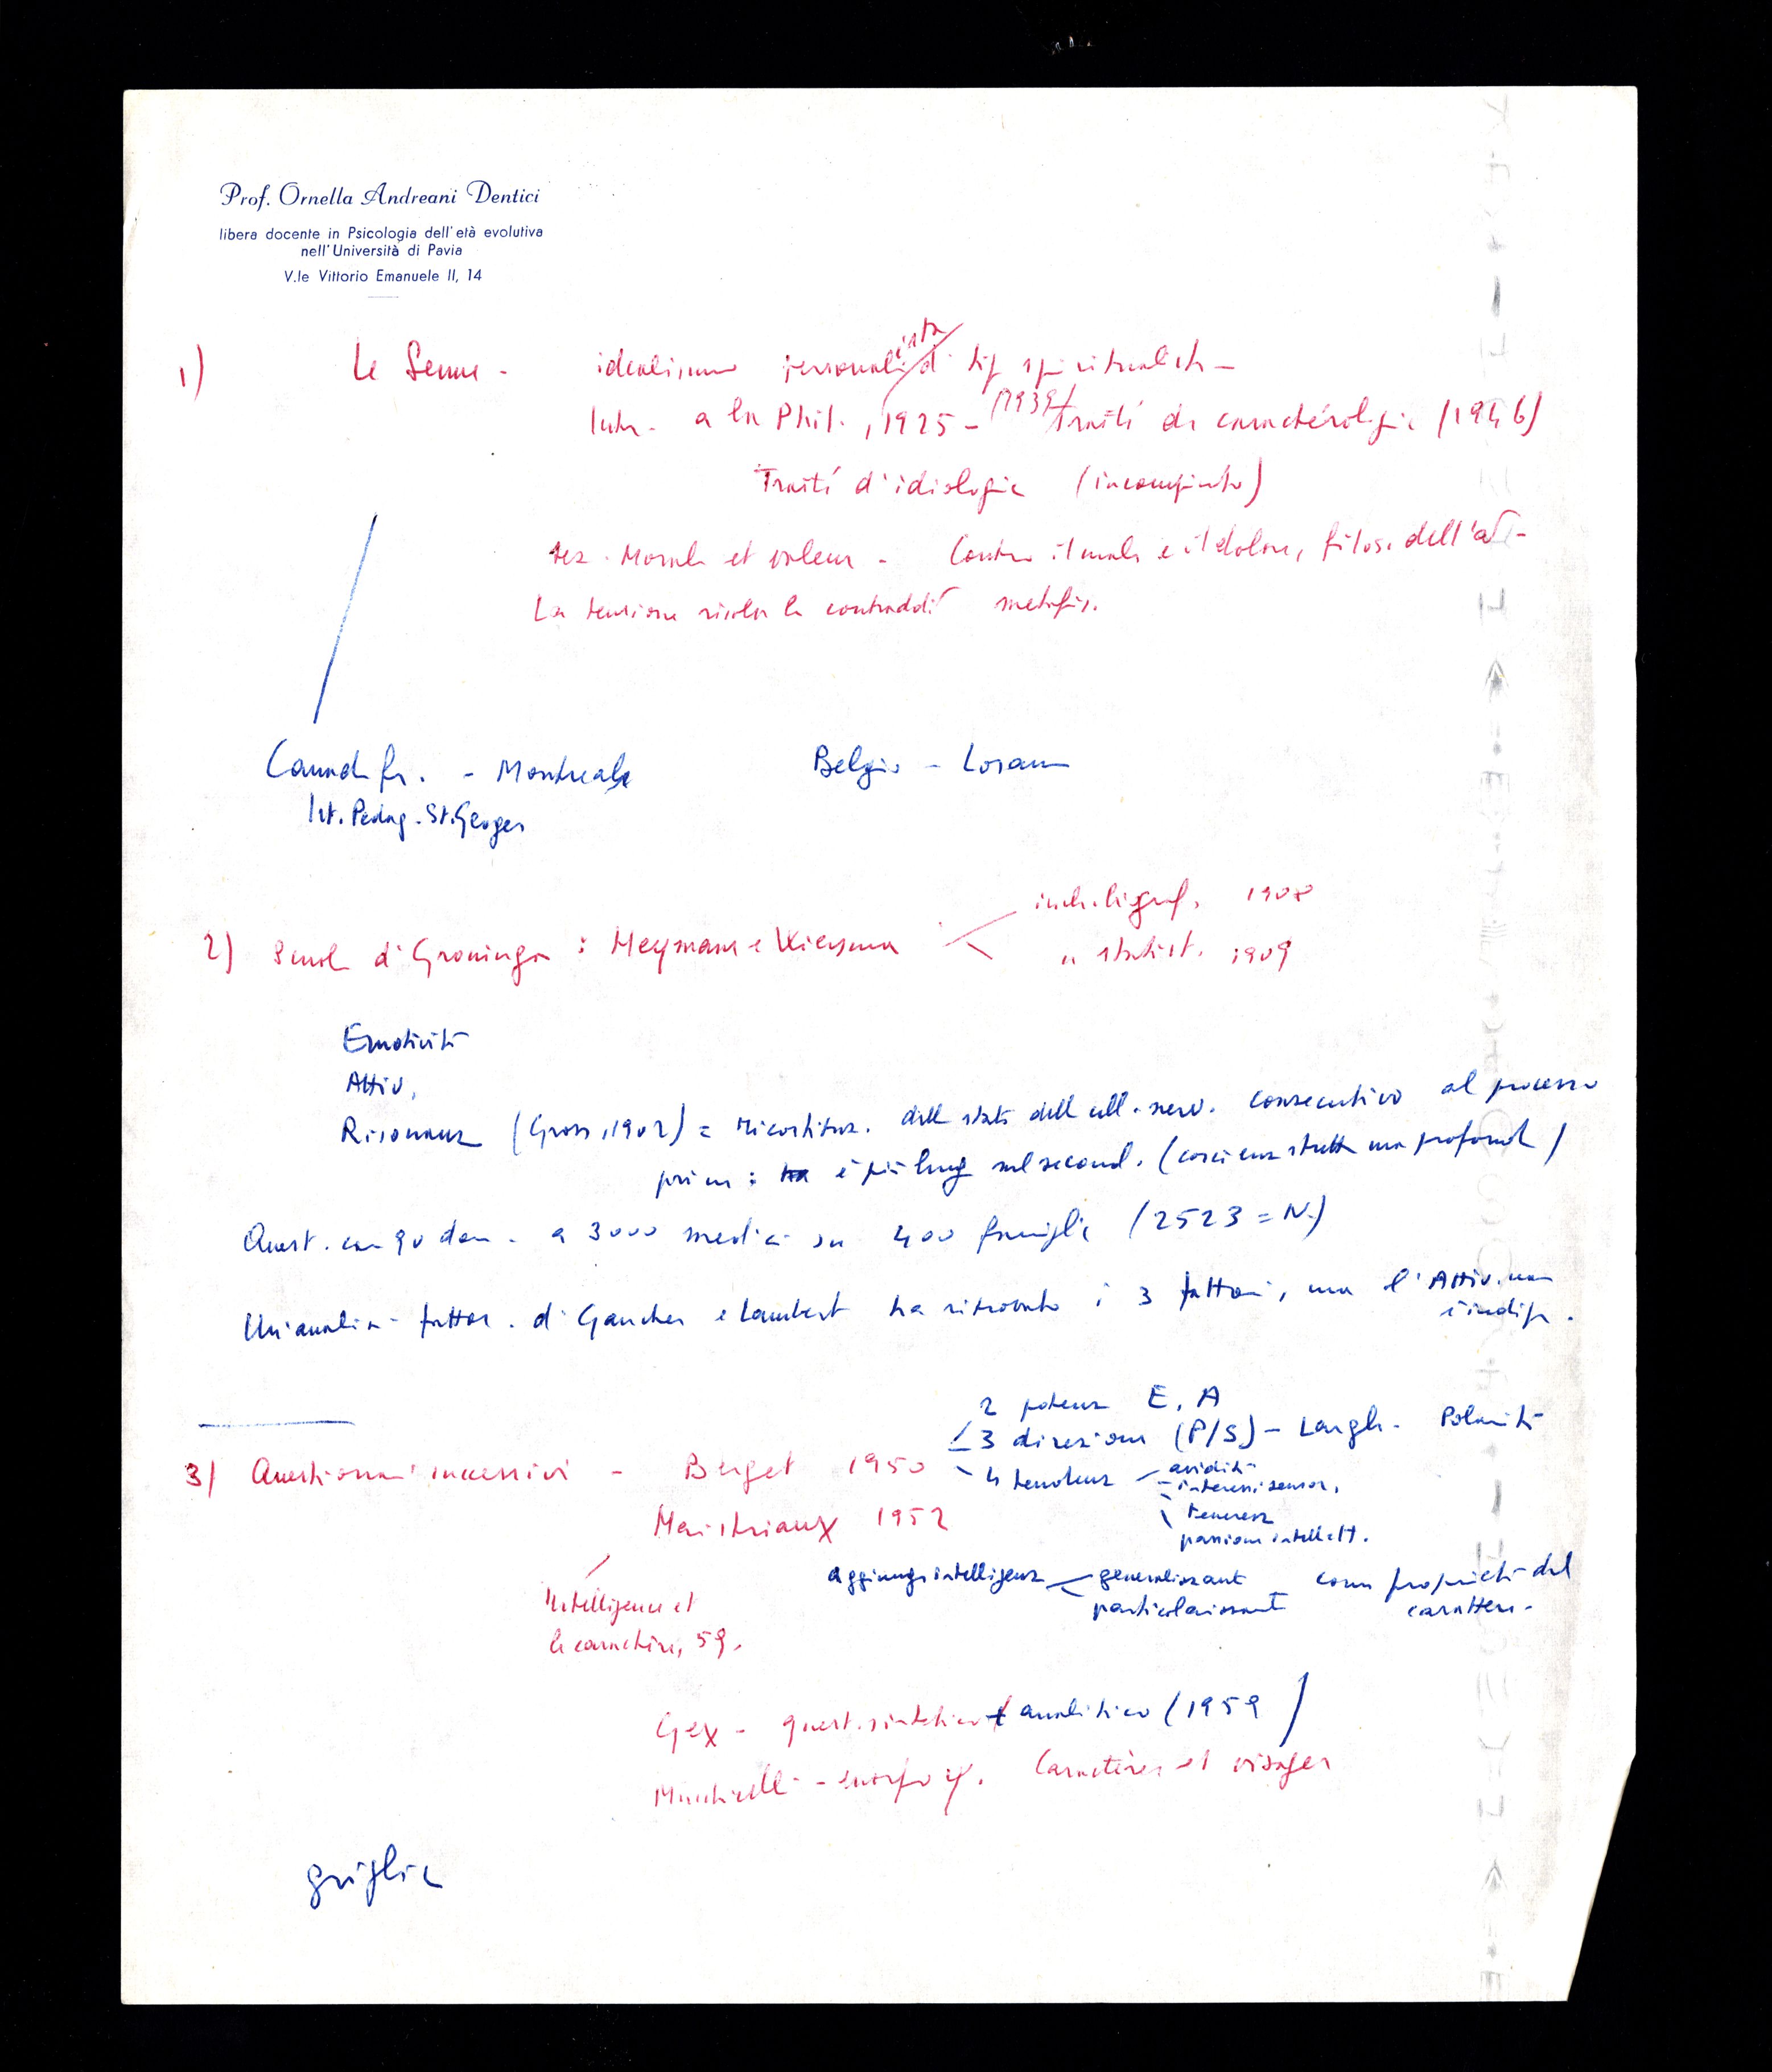 Prof. Ornella Andreani Dentici
libera docente in Psicologia dell'età evolutiva
nell'Università di Pavia
V.le Vittorio Emanuele II, 14
1) Le Senne - idealismo personalista di tip spiritualista -
Intr. a la Phil., 1925 - (1939) Traité de caractérologie (1946)
Traité d'idiologie (incompiuto)
Morale et valeur - Contro il male e il dolore, filos. dell'
La tensione risolve le contraddit metafis.
Canada fr. - Montreale
Ist. Pedag. St. Georges
Belgio -
2) Scuola di Groninga : Heymans e Wiersma
inch. biograf. 1908
" statist. 1909
Emotività
Attiv.
Risonanza (Gross, 1902) = ricostituz. dello stato delle cell. nerv. consecutivo al processo
prim : è più lung nel second. (coscienza stretta ma profonda)
Quest. con 90 dom. a 3000 medici su 400 famiglie (2523 = N.)
Un'analisi fattor. di Gaucher e Lambert ha ritrovato i 3 fattori, ma l'Attiv. non
è indip.
2 potenze E, A
3 direzioni (P/S) - Largh. Polarità
3) Questionari successivi - Berger 1950
4 tendenze
avidità
interessi sensor.
tenerezza
passione intellett.
Maistriaux 1952
aggiunge intelligenza
generalissant
particolarissant
come proprietà del
carattere -
L'intelligence et
le caractère, 59.
Gex - quest. sintetico + analitico (1959)
Mucchielli - Caractères et visages
griglia